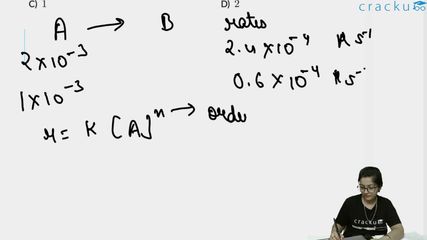 C) 1 D) 2
cracku
A → B rates
2 × 10⁻³ 2.4 × 10⁻⁴ M s⁻¹
1 × 10⁻³ 0.6 × 10⁻⁴ M s⁻
r = K [A]ⁿ → orde
cracku